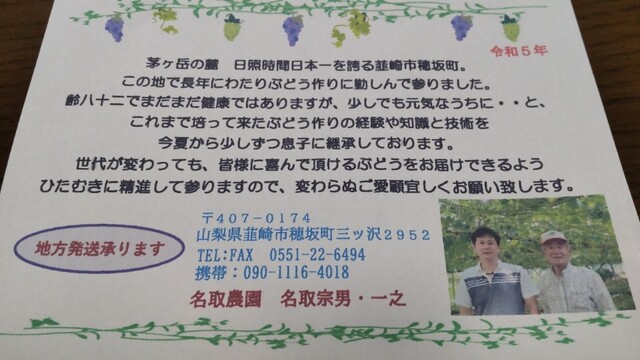 令和５年
茅ヶ岳の麓　日照時間日本一を誇る韮崎市穂坂町。
この地で長年にわたりぶどう作りに勤しんで参りました。
齢八十二でまだまだ健康ではありますが、少しでも元気なうちに・・と、
これまで培って来たぶどう作りの経験や知識と技術を
今夏から少しずつ息子に継承しております。
世代が変わっても、皆様に喜んで頂けるぶどうをお届けできるよう
ひたむきに精進して参りますので、変わらぬご愛顧宜しくお願い致します。
地方発送承ります
〒４０７-０１７４
山梨県韮崎市穂坂町三ッ沢２９５２
TEL:FAX　0551-22-6494
携帯：090-1116-4018
名取農園　名取宗男・一之